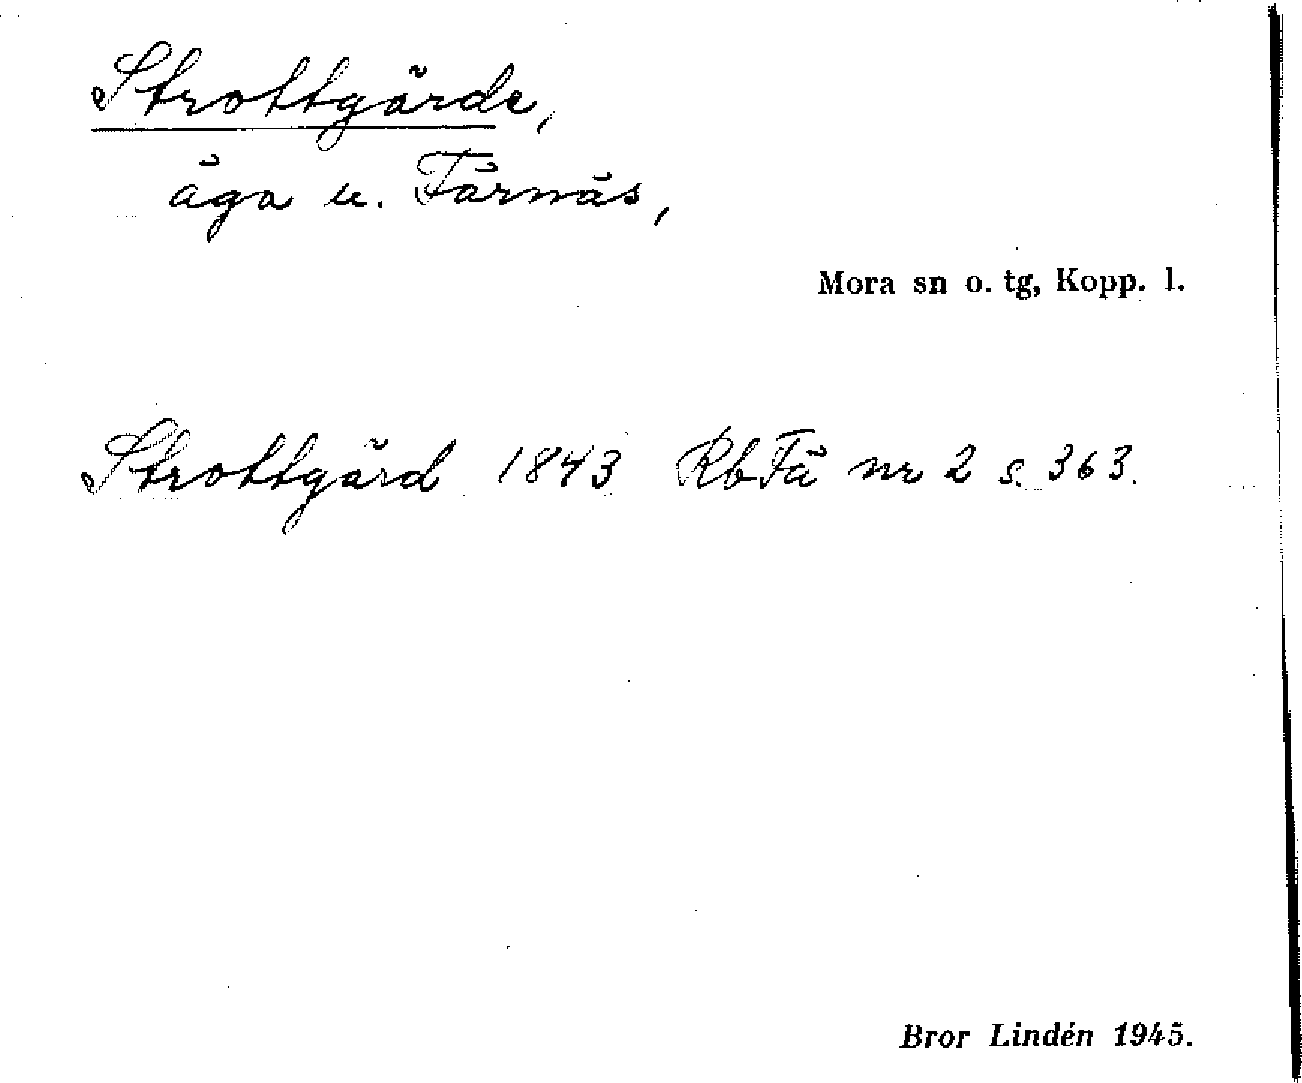 Strottgärde,
äga u. Färnäs,
Mora sn o. tg, Kopp. l.
Strottgärd 1843 Rb Fä nr 2 s. 363.
Bror Lindén 1945.